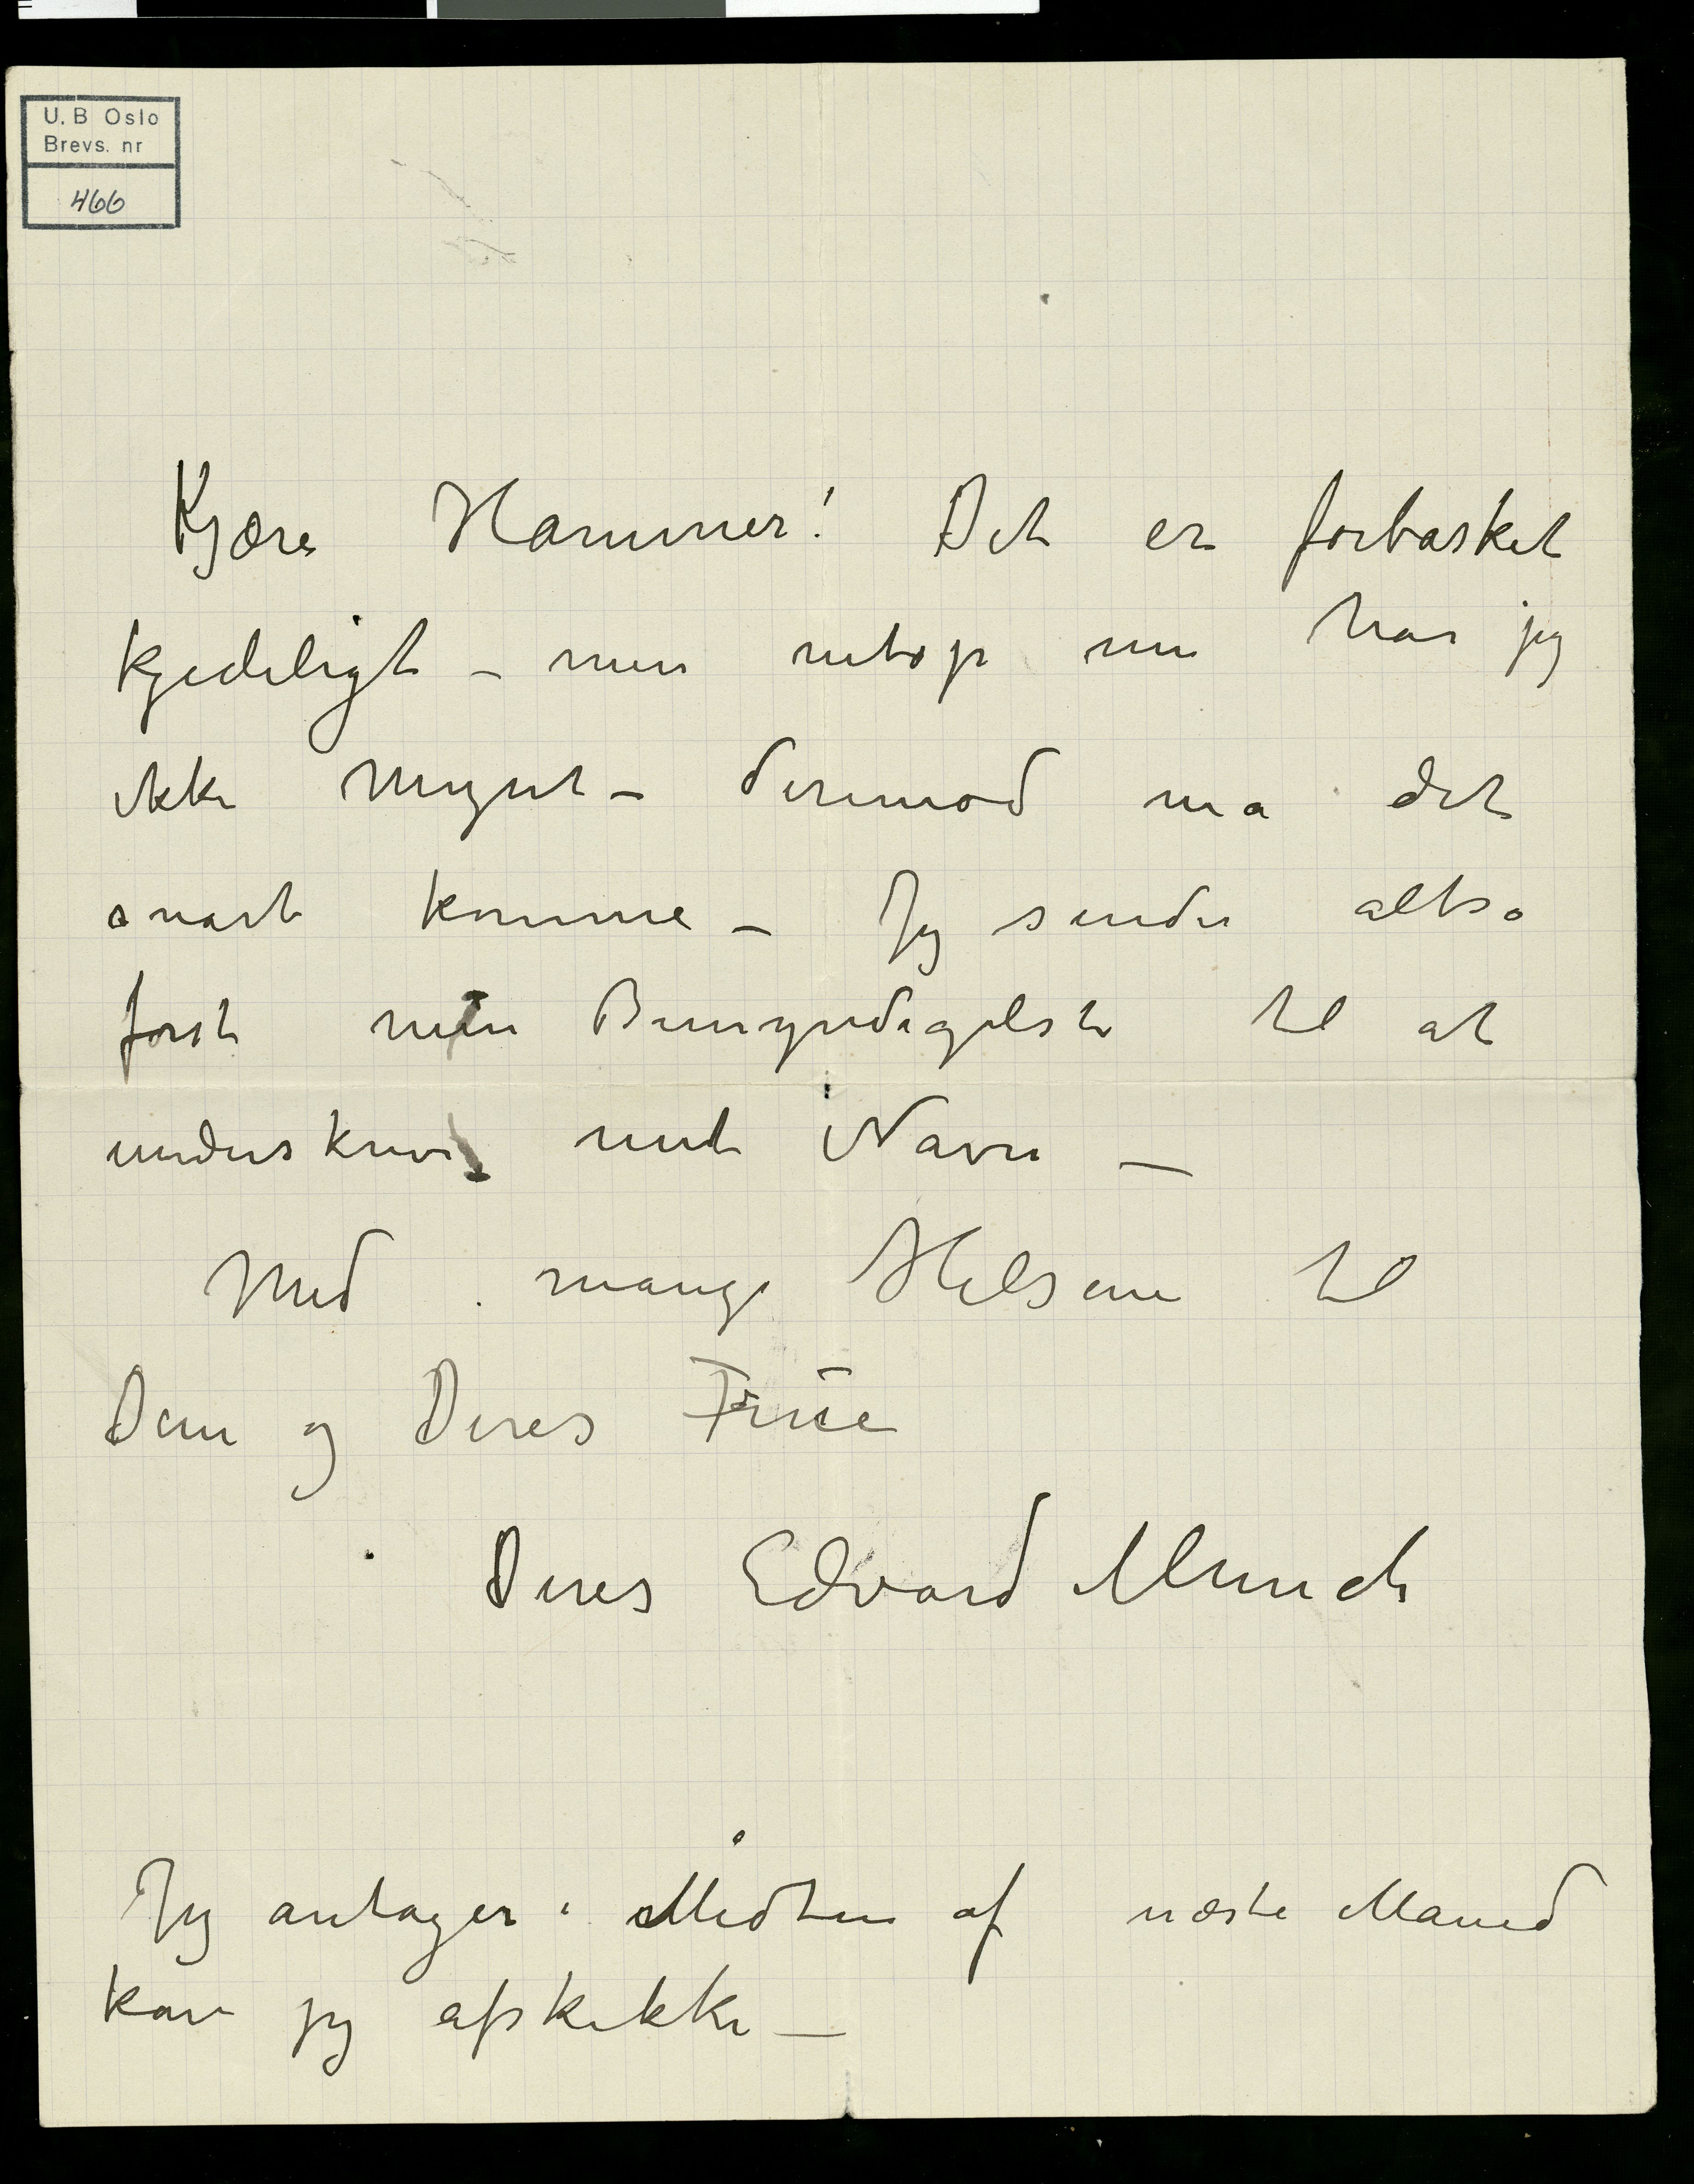 U. B Oslo
Brevs. nr
466
Kjære Hammer! Det er forbasket
kjedeligt – men netop nu har jeg
ikke Mynt – derimod må det
snart komme – Jeg sender altså
først min Bemyndigelse til at
underskrive mit Navn —
Med mange Hilsener til
Dem og Deres Frue
Deres Edvard Munch
Jeg antager i Midten af næste Måned
kan jeg afskikke —